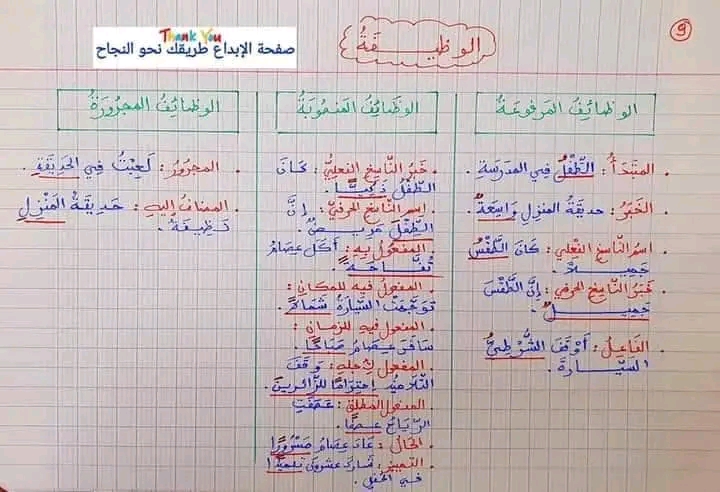 9
الوظيفة
Thank You
صفحة الإبداع طريقك نحو النجاح
الوظائف المرفوعة
. المبتدأ: الطفل في المدرسة.
. الخبر: حديقة المنزل واسعة.
. اسم الناسخ الفعلي: كان الطقس
جميلا.
. خبر الناسخ الحرفي: إن الطقس
جميل.
. الفاعل: أوقف الشرطي
السيارة.
الوظائف المنصوبة
. خبر الناسخ الفعلي: كان
الطفل ذكيا.
. اسم الناسخ الحرفي: إن
الطفل مريض.
. المفعول به: أكل عصام
تفاحة.
. المفعول فيه للمكان:
توجهت السيارة شمالا.
. المفعول فيه للزمان:
سافر عصام صباحا.
. المفعول لأجله: وقف
التلاميذ احتراما للزائرين.
. المفعول المطلق: عصفت
الرياح عصفا.
. الحال: عاد عصام مسرورا
. التمييز: شارك عشرون تلميذا
في الحفل.
الوظائف المجرورة
. المجرور: لعبت في الحديقة.
. المضاف إليه: حديقة المنزل
نظيفة.